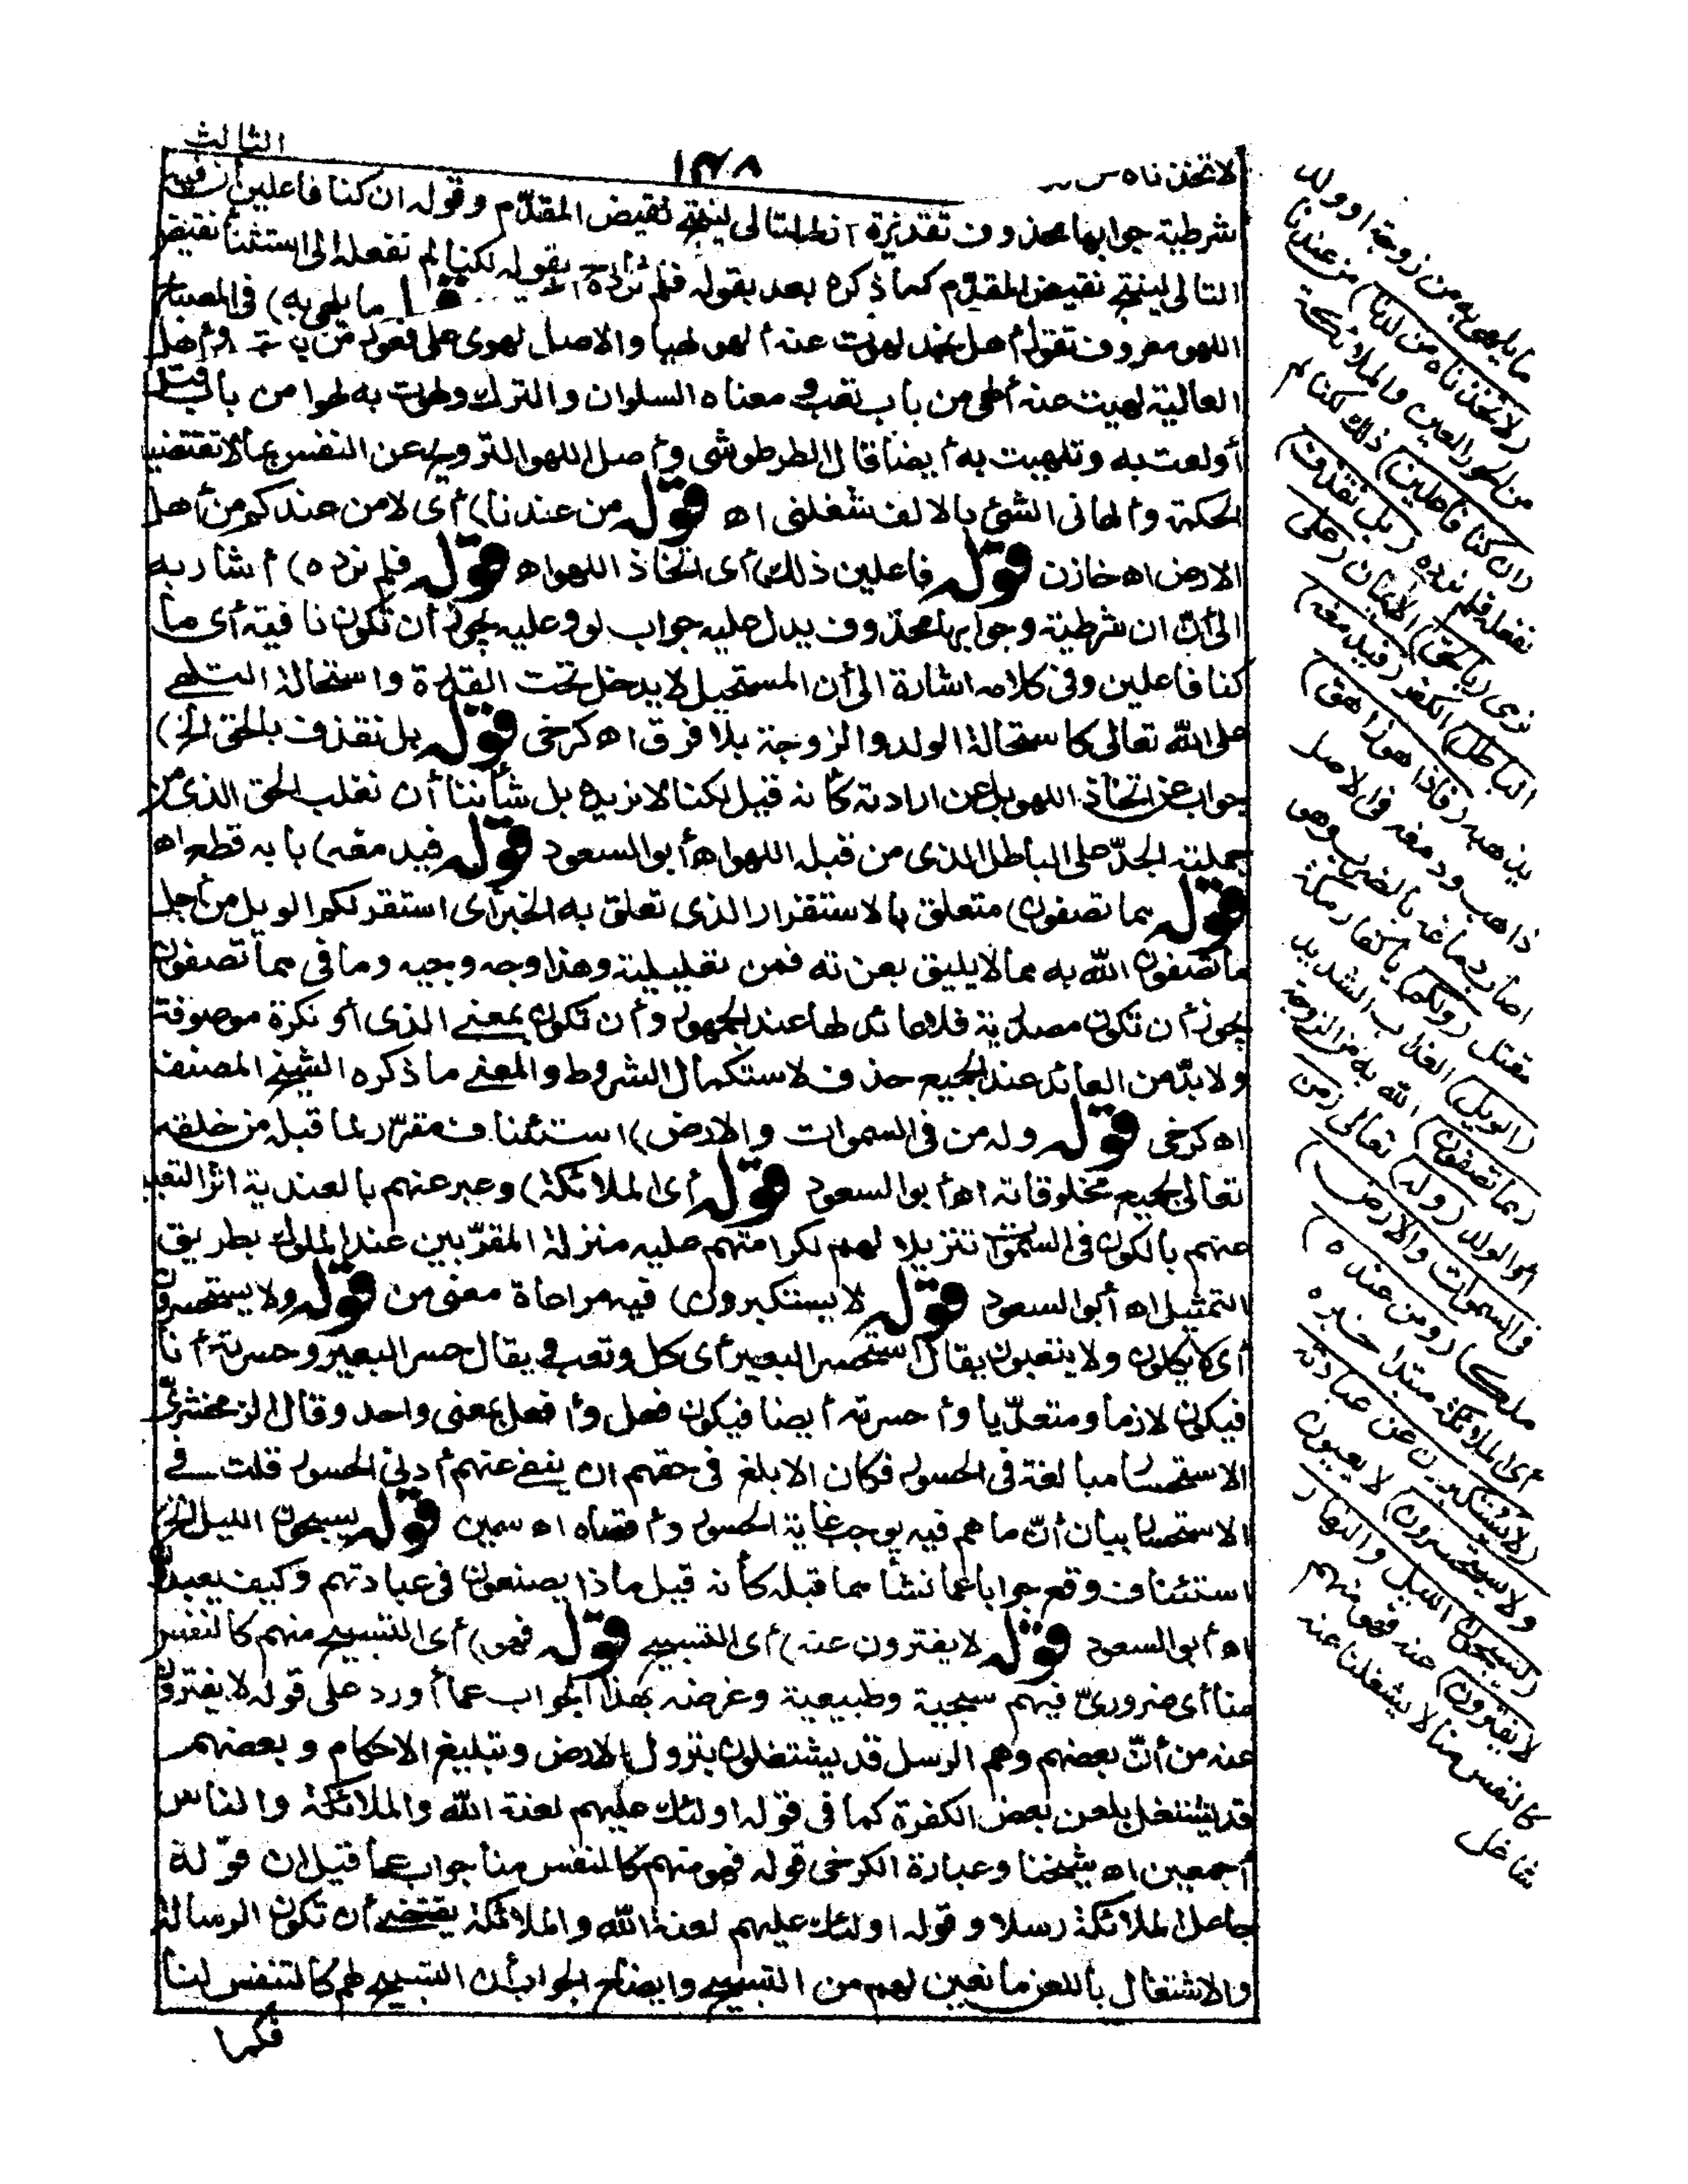 الثالث
١٢٨
لاتخذناه
شرطية جوابها محذوف تقديره لتالى لينتج نقيض المقدّم وقوله ان كنا فاعلين أن فيه
التالى لينتج نقيض المقدّم كما ذكره بعد بقوله فلم نرده اه بقوله لكنا لم نفعله الى استثنا نقيض
ما يلهى به) فى المصباح
اللهو معروف تقول أهل نجد لهوت عنه ألهو لهيا والاصل لهوى على فعول من باب وأهل
العالية لهيت عنه ألهى من باب تعب ومعناه السلوان والترك ولهوت به لهوا من باب قتل
أولعت به وتلهيت به أيضا قال الطرطوشى وأصل اللهو الترويح عن النفس بما لا تقتضيه
الحكمة وألهانى الشئ بالالف شغلنى اه قوله من عندنا) أى لا من عندكم من أهل
الارض اه خازن قوله فاعلين ذلك) أى اتخاذ اللهو اه قوله فلم نرده) أشار به
الى أن ان شرطية وجوابها محذوف يدل عليه جواب لو وعليه يجوز أن تكون نافية أى ما
كنا فاعلين وفى كلامه اشارة الى أن المستحيل لا يدخل تحت القدرة واستحالة التلهى
على الله تعالى كاستحالة الولد والزوجة بلا فرق اه كرخى قوله بل نقذف بالحق الخ)
جواب عن اتخاذ اللهو بل عن ارادته كأنه قيل لكنا لا نريده بل شأننا أن نغلب الحق الذى من
جملته الجدّ على الباطل الذى من قبله اللهو اه أبو السعود قوله فيدمغه) بابه قطع اه
قوله مما تصفون) متعلق بالاستقرار الذى تعلق به الخبر أى استقر لكم الويل من أجل
ما تصفون الله به مما لا يليق بعزته فمن تعليلية وهذا وجه وجيه وما فى مما تصفون
يجوز أن تكون مصدرية فلا عائد لها عند الجمهور وأن تكون بمعنى الذى أو نكرة موصوفة
ولا بدّ من العائد عند الجميع حذف لاستكمال الشروط والمعنى ما ذكره الشيخ المصنف
اه كرخى قوله وله من فى السموات والارض) استئناف مقرّر لما قبله من خلقه
تعالى لجميع مخلوقاته اه أبو السعود قوله أى الملائكة) وعبر عنهم بالعندية اثر التعبير
عنهم بالكون فى السموت تنزيلا لهم لكرامتهم عليه منزلة المقرّبين عند الملوك بطريق
التمثيل اه أبو السعود قوله لا يستكبرون) فيه مراعاة معنى من قوله ولا يستحسرون
أى لا يكلون ولا يتعبون يقال استحسر البعير أى كل وتعب ويقال حسر البعير وحسرته أنا
فيكون لازما ومتعدّيا وأحسرته أيضا فيكون فعل وأفعل بمعنى واحد وقال الزمخشرىّ
الاستحسار مبالغة فى الحسور فكان الابلغ فى حقهم ان ينفى عنهم أدنى الحسور قلت فى
الاستحسار بيان أنّ ما هم فيه يوجب غاية الحسور وأقصاه اه سمين قوله يسبحون الليل الخ
استئناف وقع جوابا عما نشأ مما قبله كأنه قيل ماذا يصنعون فى عبادتهم وكيف يعبدون
اه أبو السعود قوله لا يفترون عنه) أى التسبيح قوله فهو) أى التسبيح منهم كالنفس
منا أى ضرورىّ فيهم سجية وطبيعية وغرضه بهذا الجواب عما أورد على قوله لا يفترون
عنه من أنّ بعضهم وهم الرسل قد يشتغلون بنزول الارض وتبليغ الاحكام وبعضهم
قد يشتغل بلعن بعض الكفرة كما فى قوله اولئك عليهم لعنة الله والملائكة والناس
أجمعين اه شيخنا وعبارة الكرخى قوله فهو منهم كالنفس منا جواب عما قيل ان قوله
جاعل الملائكة رسلا وقوله اولئك عليهم لعنة الله والملائكة يقتضى أن تكون الرسالة
والاشتغال باللعن مانعين لهم من التسبيح وايضاح الجواب أن التسبيح لهم كالتنفس لنا
فكما
ما يلهى به من زوجة او ولد
(لاتخذناه من لدنا) من عندنا
من الحور العين والملائكة
(ان كنا فاعلين) ذلك لكنا لم
نفعله فلم نرده (بل نقذف)
نرمى (بالحق) الايمان (على
الباطل) الكفر (فيدمغه)
يذهبه (فاذا هو زاهق)
ذاهب ودمغه فى الاصل
اصاب دماغه بالضرب وهو
مقتل (ولكم) يا كفار مكة
(الويل) العذاب الشديد
(مما تصفون) الله به من الزوجة
او الولد (وله) تعالى (من
فى السموات والارض)
ملكا (ومن عنده)
أى الملائكة مبتدا خبره
(لا يستكبرون عن عبادته
ولا يستحسرون) لا يعيون
(يسبحون الليل والنهار
لا يفترون) عنه فهو منهم
كالنفس منا لا يشغلنا عنه
شاغل